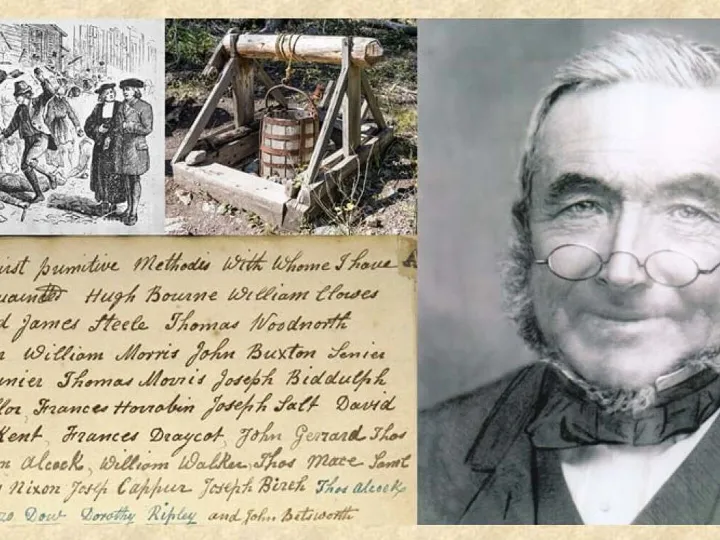 irst primitive Methodis With Whome I have A
uainted Hugh Bourne William Clowes
d James Steele Thomas Woodnorth
William Morris John Buxton Senier
unier Thomas Morris Joseph Biddulph
llor, Frances Horrobin Joseph Salt David
Kent, Frances Draycot, John Gerrard Thos
n Alcock, William Walker, Thos Mace Saml
Nixon Josep Cappur Joseph Birch Thos Alcock
zo Dow Dorothy Ripley and John Betsworth